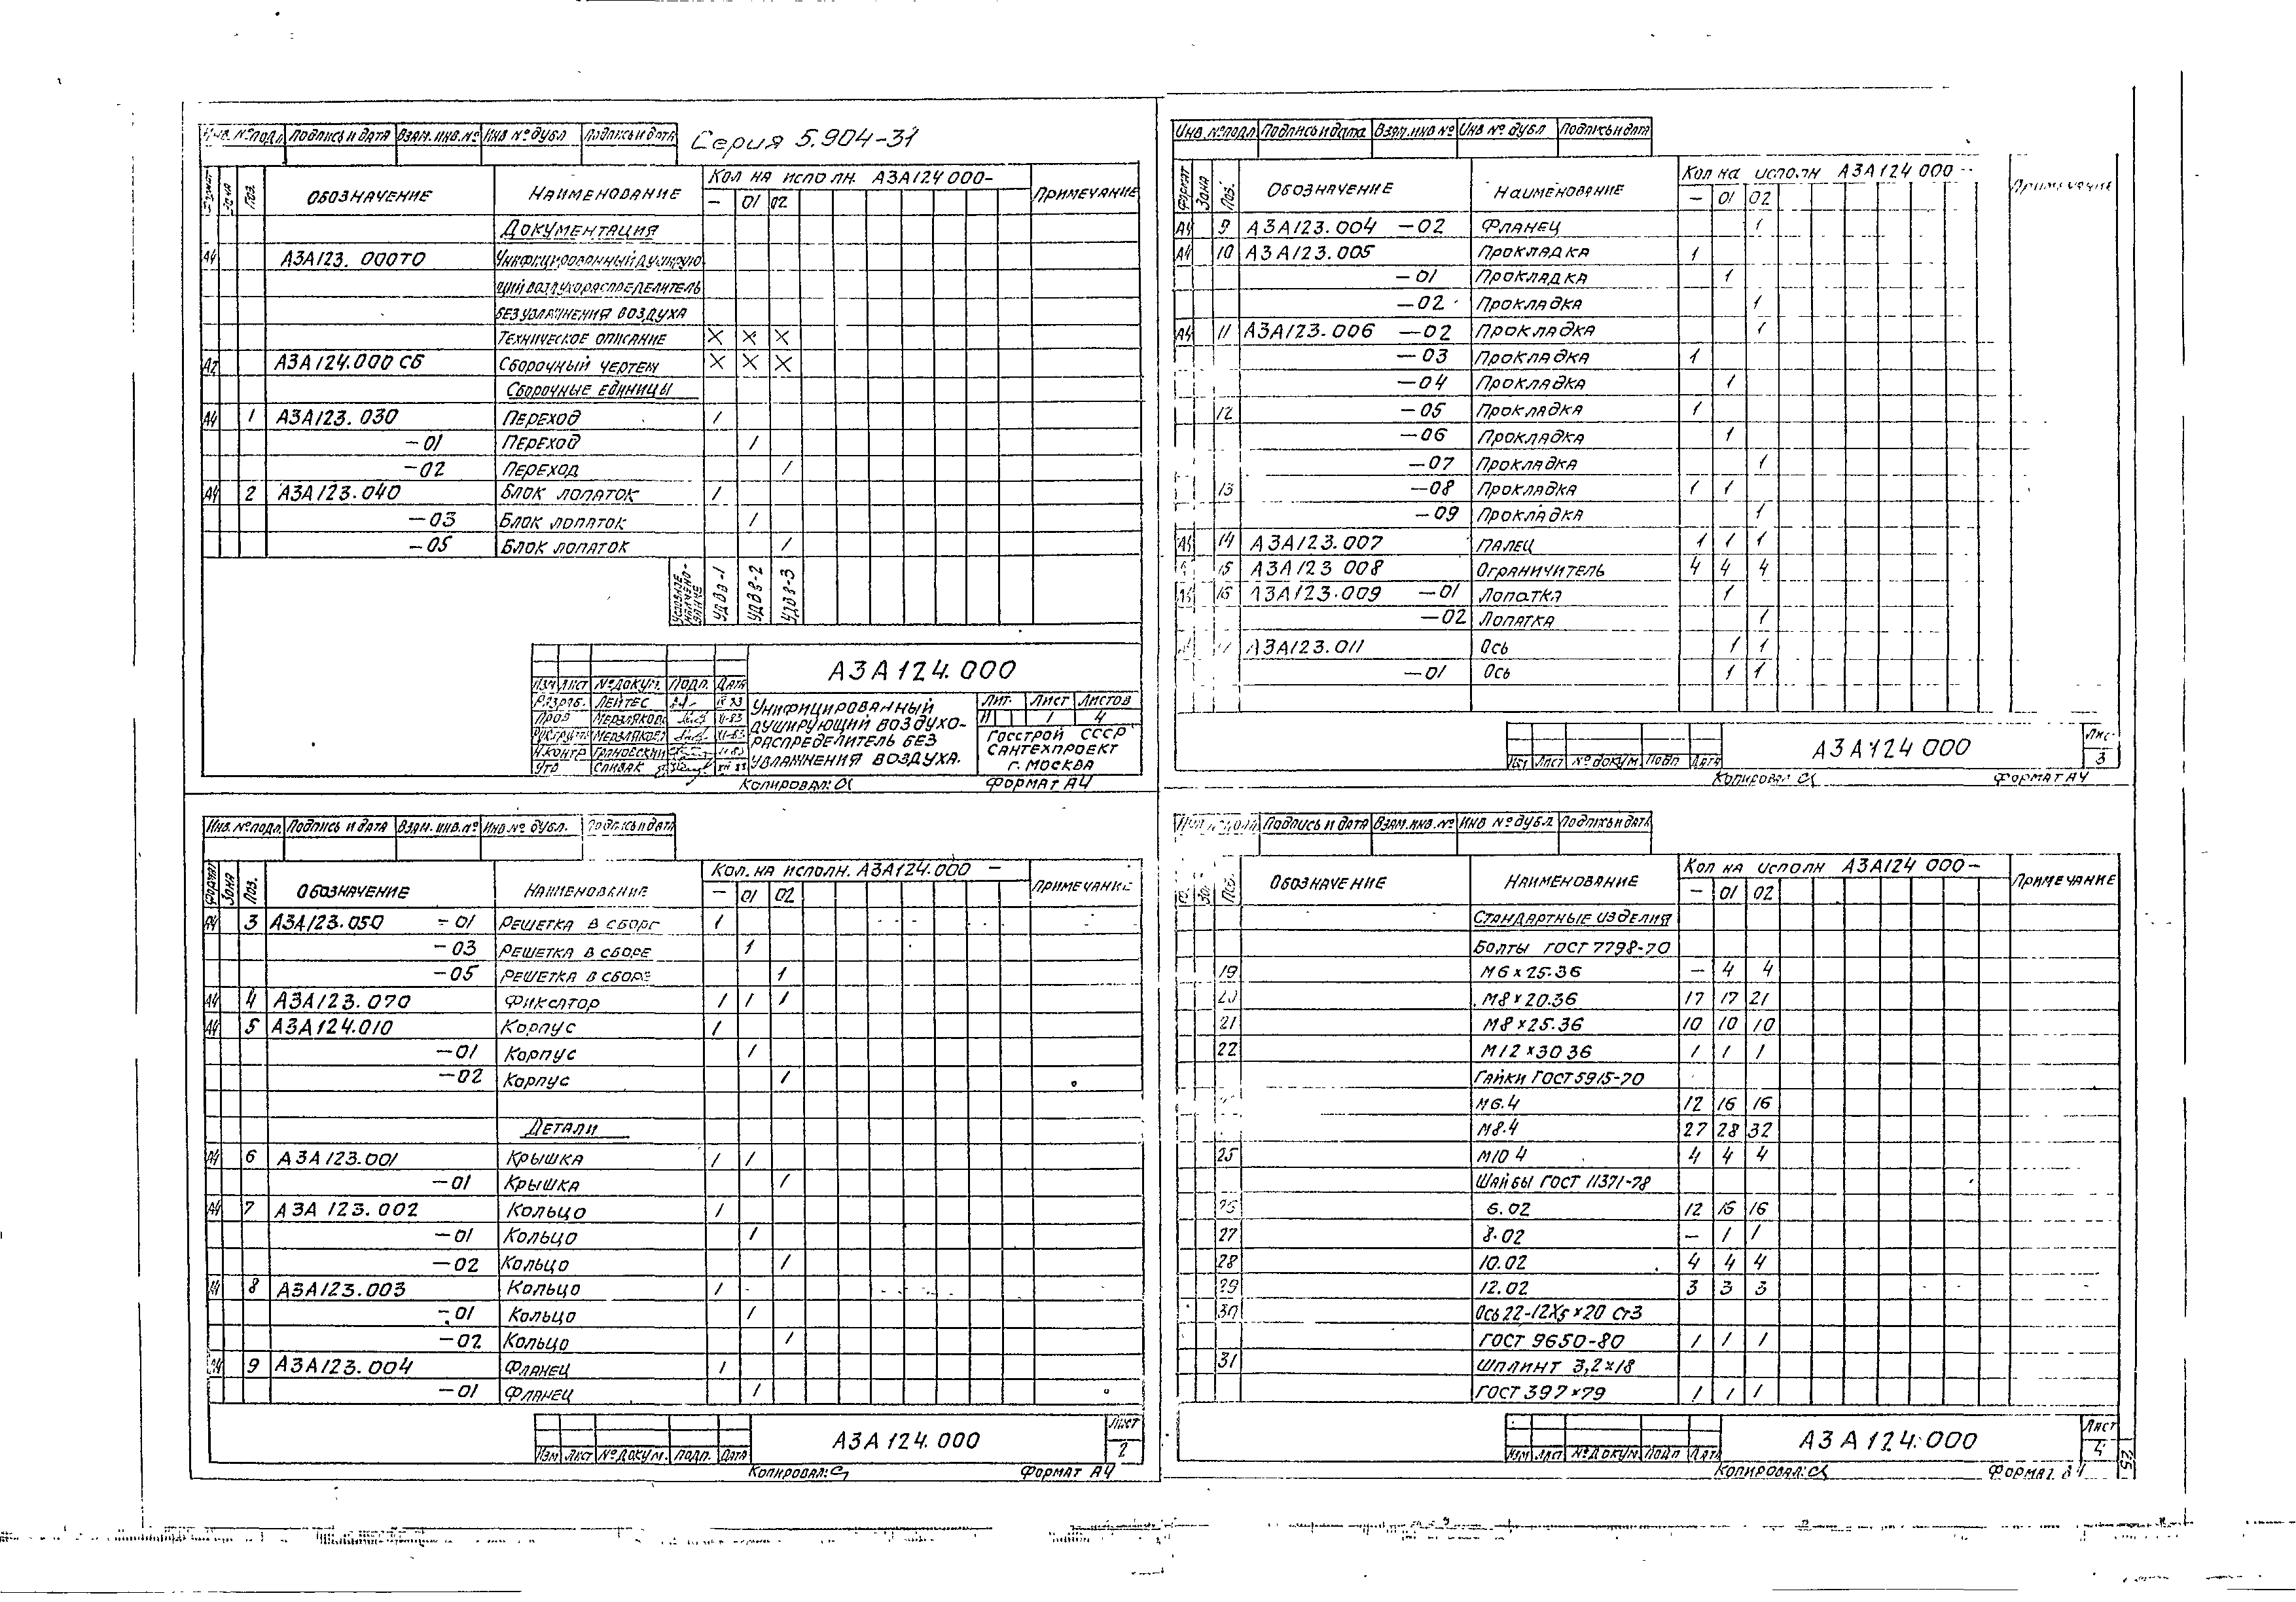 Серия 5.904-31
Инв. №подл. Подпись и дата Взам. инв. № Инв № дубл Подпись и дата
Формат Зона Поз. Обозначение Наименование Кол на исполн. А3А124 000- Примечание
— 01 02
Документация
А4 А3А123. 000ТО Унифицированный душирую
щий воздухораспределитель
без увлажнения воздуха
Техническое описание X X X
А2 А3А124.000 СБ Сборочный чертеж X X X
Сборочные единицы
А4 1 А3А123. 030 Переход 1
—01 Переход 1
—02 Переход 1
А4 2 А3А123.040 Блок лопаток 1
—03 Блок лопаток 1
—05 Блок лопаток 1
Условное УДВ8-1 УДВ8-2 УДВ8-3
А3А124.000
Изм Лист № докум. Подп. Дата
Разраб. Лейтес
Пров Мерзляков
Мерзляков
Н.контр Грановский
Утв Спивак
Унифицированный
душирующий воздухо-
распределитель без
увлажнения воздуха.
Лит. Лист Листов
И 1 4
Госстрой СССР
Сантехпроект
г. Москва
Копировал: Формат А4
Инв. №подл. Подпись и дата Взам. инв. № Инв. № дубл. Подпись и дата
Формат Зона Поз. Обозначение Наименование Кол. на исполн. А3А124.000 — Примечание
— 01 02
А4 3 А3А123.050 —01 Решетка в сборе 1
—03 Решетка в сборе 1
—05 Решетка в сборе 1
А4 4 А3А123.070 Фиксатор 1 1 1
А4 5 А3А124.010 Корпус 1
—01 Корпус 1
—02 Корпус 1
Детали
А4 6 А3А123.001 Крышка 1 1
—01 Крышка 1
А4 7 А3А 123.002 Кольцо 1
—01 Кольцо 1
—02 Кольцо 1
А4 8 А3А123.003 Кольцо 1
—01 Кольцо 1
—02 Кольцо 1
А4 9 А3А123.004 Фланец 1
—01 Фланец 1
Изм Лист № докум. Подп. Дата
А3А 124.000
Лист
2
Копировал: Формат А4
Инв. №подл Подпись и дата Взам. инв № Инв № дубл Подпись и дата
Формат Зона Поз. Обозначение Наименование Кол на исполн А3А124 000 - Примечание
— 01 02
А4 9 А3А123.004 —02 Фланец 1
А4 10 А3А123.005 Прокладка 1
—01 Прокладка 1
—02 Прокладка 1
А4 11 А3А123.006 —02 Прокладка 1
—03 Прокладка 1
—04 Прокладка 1
12 —05 Прокладка 1
—06 Прокладка 1
—07 Прокладка 1
13 —08 Прокладка 1 1
—09 Прокладка 1
А4 14 А3А123.007 Палец 1 1 1
15 А3А123 008 Ограничитель 4 4 4
16 А3А123.009 —01 Лопатка 1
—02 Лопатка 1
А3А123.011 Ось 1 1
—01 Ось 1 1
Изм Лист № докум Подп Дата
А3А124 000
Лис
3
Копировал Формат А4
Подпись и дата Взам. инв. № Инв № дубл Подпись и дата
Поз. Обозначение Наименование Кол на исполн А3А124 000— Примечание
— 01 02
Стандартные изделия
Болты ГОСТ 7798-70
19 М6 х 25.36 — 4 4
20 М8 х 20.36 17 17 21
21 М8 х 25.36 10 10 10
22 М12 х 30 36 1 1 1
Гайки ГОСТ 5915-70
М6.4 12 16 16
М8.4 27 28 32
25 М10 4 4 4 4
Шайбы ГОСТ 11371-78
26 6.02 12 16 16
27 8.02 — 1 1
28 10.02 4 4 4
29 12.02 3 3 3
30 Ось 22-12Х5 х 20 Ст3
ГОСТ 9650-80 1 1 1
31 Шплинт 3,2 х 18
ГОСТ 397 х 79 1 1 1
Изм Лист № докум Подп Дата
А3А 124.000
Лист
4
Копировал: Формат А4
25